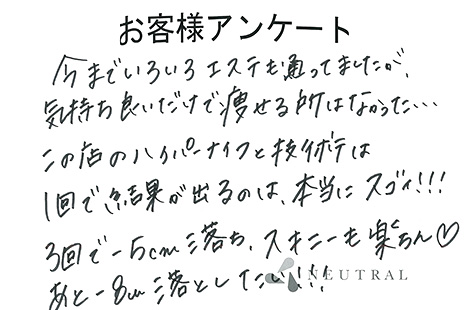 お客様アンケート
今までいろいろエステも通ってましたが、
気持ち良いだけで痩せる所はなかった…
この店のハイパーナイフと技術では
1回で結果が出るのは、本当にスゴイ!!!
3回で-5cm落ち、スキニーも楽ちん♡
あと-8cm落としたい!!!
NEUTRAL